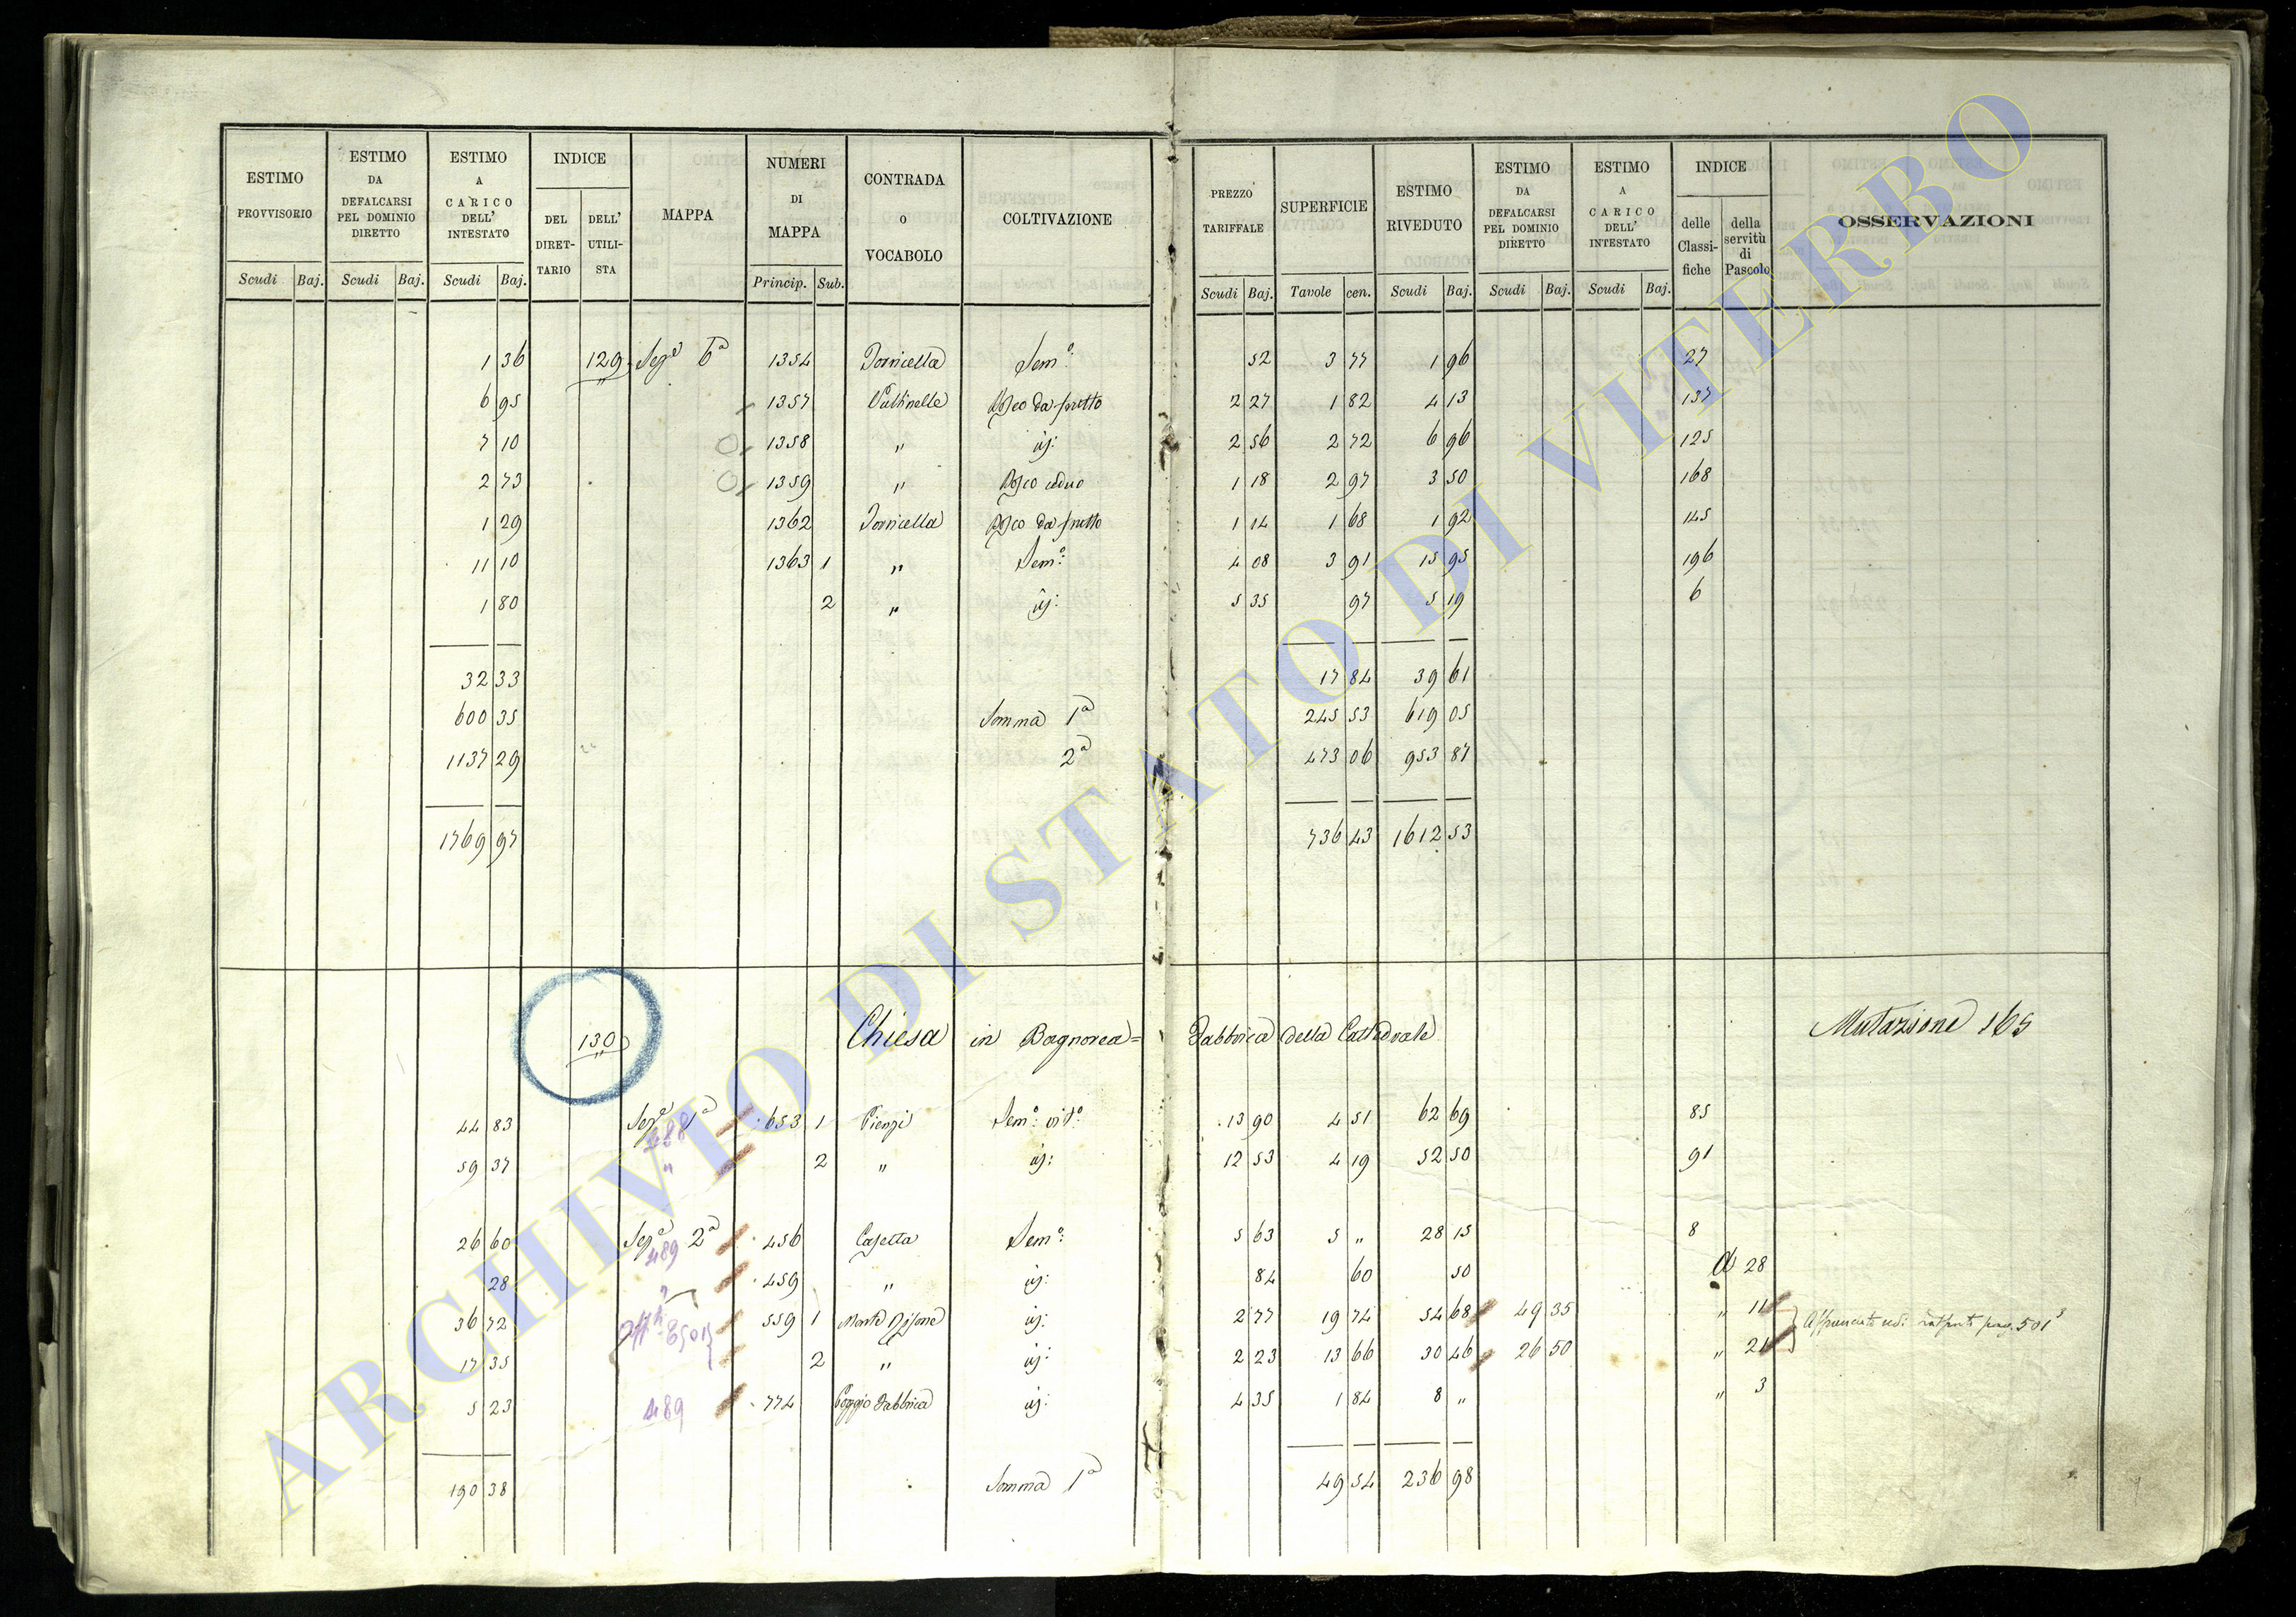 ESTIMO PROVVISORIO
ESTIMO DA DEFALCARSI PEL DOMINIO DIRETTO
ESTIMO A CARICO DELL' INTESTATO
INDICE
DEL DIRETTARIO
DELL' UTILISTA
MAPPA
NUMERI DI MAPPA
CONTRADA O VOCABOLO
COLTIVAZIONE
PREZZO TARIFFALE
SUPERFICIE
ESTIMO RIVEDUTO
ESTIMO DA DEFALCARSI PEL DOMINIO DIRETTO
ESTIMO A CARICO DELL' INTESTATO
INDICE
delle Classifiche
della servitù di Pascolo
OSSERVAZIONI
Scudi Baj. Scudi Baj. Scudi Baj. Princip. Sub. Scudi Baj. Tavole cen. Scudi Baj. Scudi Baj. Scudi Baj.
1 36 129 Sez.e 6a 1354 Torricella Sem.o 52 3 77 1 96 27
6 95 1357 Bosco da frutto 2 27 1 82 4 13 137
7 10 1358 " id: 2 56 2 72 6 96 125
2 73 1359 " Bosco ceduo 1 18 2 97 3 50 168
1 29 1362 Torricella Bosco da frutto 1 14 1 68 1 92 145
11 10 1363 1 " Sem.o 4 08 3 91 15 95 196
1 80 2 " id: 5 35 97 5 19 6
32 33 17 84 39 61
600 35 Somma 1a 245 53 619 05
1137 29 2a 473 06 953 87
1769 97 736 43 1612 53
130 Chiesa in Bagnorea = Fabbrica della Cattedrale Mutazione 165
44 83 Sez.e 1a 653 1 Pienzi Sem.o vit.o 13 90 4 51 62 69 85
488
59 37 " 2 " id: 12 53 4 19 52 50 91
26 60 Sez.e 2a 456 Casetta Sem.o 5 63 5 " 28 15 8
489
28 " 459 " id: 84 60 50 A 28
36 72 559 1 Monte id: 2 77 19 74 54 68 49 35 " 11
E501 pag. 501
17 35 2 " id: 2 23 13 66 30 46 26 50 " 21
5 23 489 774 Poggio Fabbrica id: 4 35 1 84 8 " " 3
190 38 Somma 1a 49 54 236 98
ARCHIVIO DI STATO DI VITERBO